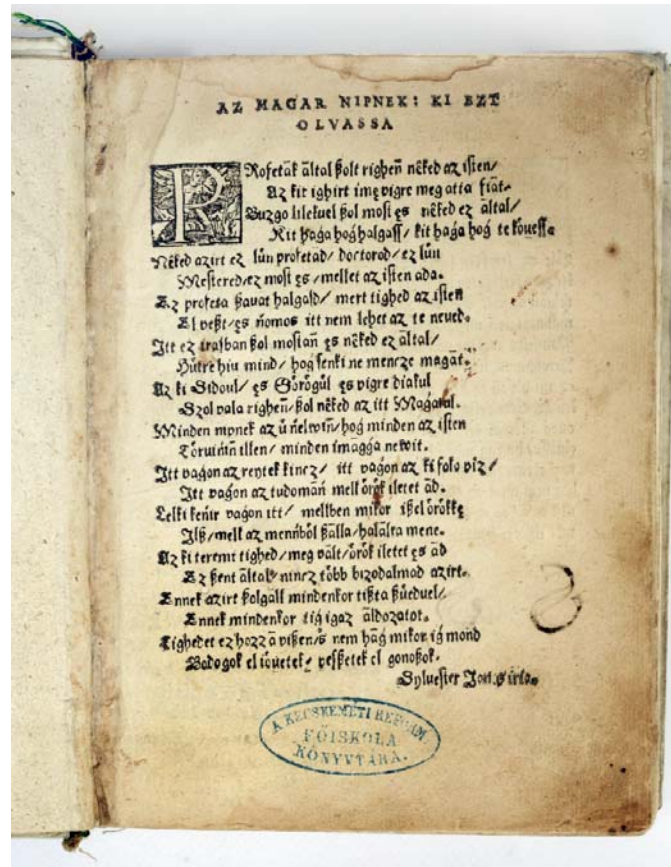 AZ MAGAR NIPNEK: KI EZT
OLVASSA
PRofetāk āltal ßolt righen̄ nēked az isten/
Az kit ighirt imę vigre meg atta fiāt.
Buzgo lilekuel ßol most ęs nēked ez āltal/
Kit haga hoǵ halgass/ kit haga hoǵ te kôuess.
Nēked azirt ez lūn profetad/ doctorod/ ez lūn
Mestered/ez most ęs/mellet az isten ada.
Ez profeta ßauat halgasd/ mert tighed az isten
El veßt/ęs n̄omos itt nem lehet az te neued.
Itt ez irasban ßol mostan̄ ęs nēked ez āltal/
Hūtre hiu mind/ hoǵ senki ne mencze magāt.
Az ki Sidoul/ ęs Gôrôgūl ęs vigre diakul
Szol vala righen̄/ ßol nēked az itt Maǵarul.
Minden nipnek az ū n̄elwin/ hoǵ minden az isten
Tôruinin illen/ minden imāgga newit.
Itt vaǵon az reytek kincz/ itt vaǵon az ki folo vîz/
Itt vaǵon az tudomān̄ melľ ôrôk iletet ād.
Lelki kenir vaǵon itt/ mellben mikor ißel ôrôkkę
Ilß/mell az menn̄bôl ßālla/halālra mene.
Az ki teremt tighed/ meg vālt/ôrôk iletet ęs ad
Ez ßent āltal/ nincz tôbb bizodalmad azirt.
Ennek azirt ßolgall mindenkor tißta ßūeduel/
Ennek mindenkor tiǵ igaz āldozatot.
Tighedet ez hozzā vißen/s nem hāǵ mikor iǵ mond
Bodogok el iôuetek/ veßßetek el gonoßok.
Syluester Jan. Sirta.
A KECSKEMÉTI REFORM.
FŐISKOLA
KÖNYVTÁRA.